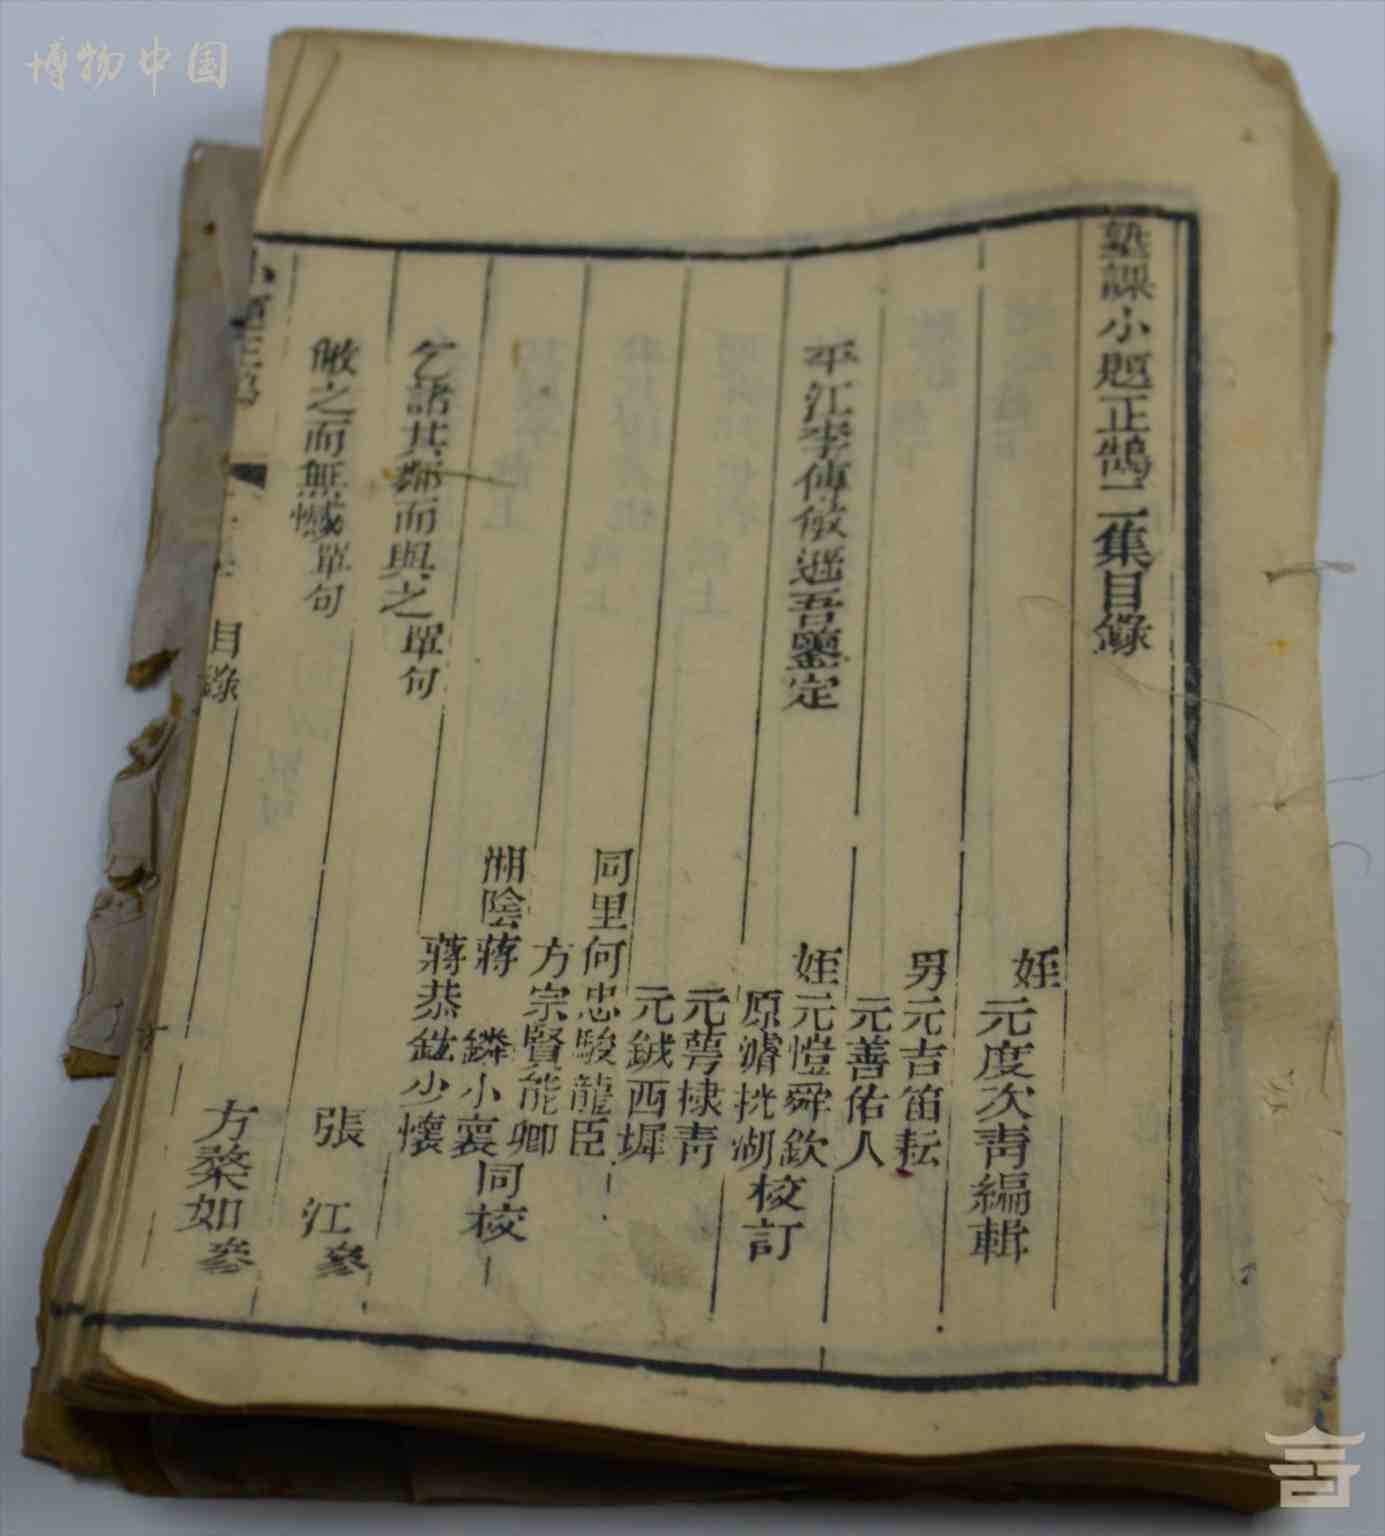 博物中国
塾課小題正鵠二集目錄
姪元度次靑編輯
男元吉笛耘
元善佑人
平江李傅敏遜吾鑒定
姪元愷舜欽校訂
原濬挑湖
元蕚棣靑
元鋮西墀
同里何忠駿龍臣
方宗賢能卿
湘陰蔣鏻小襄同校
蔣恭鎡少懷
乞諸其鄰而與之單句
張江
敝之而無憾單句
方楘如
目錄